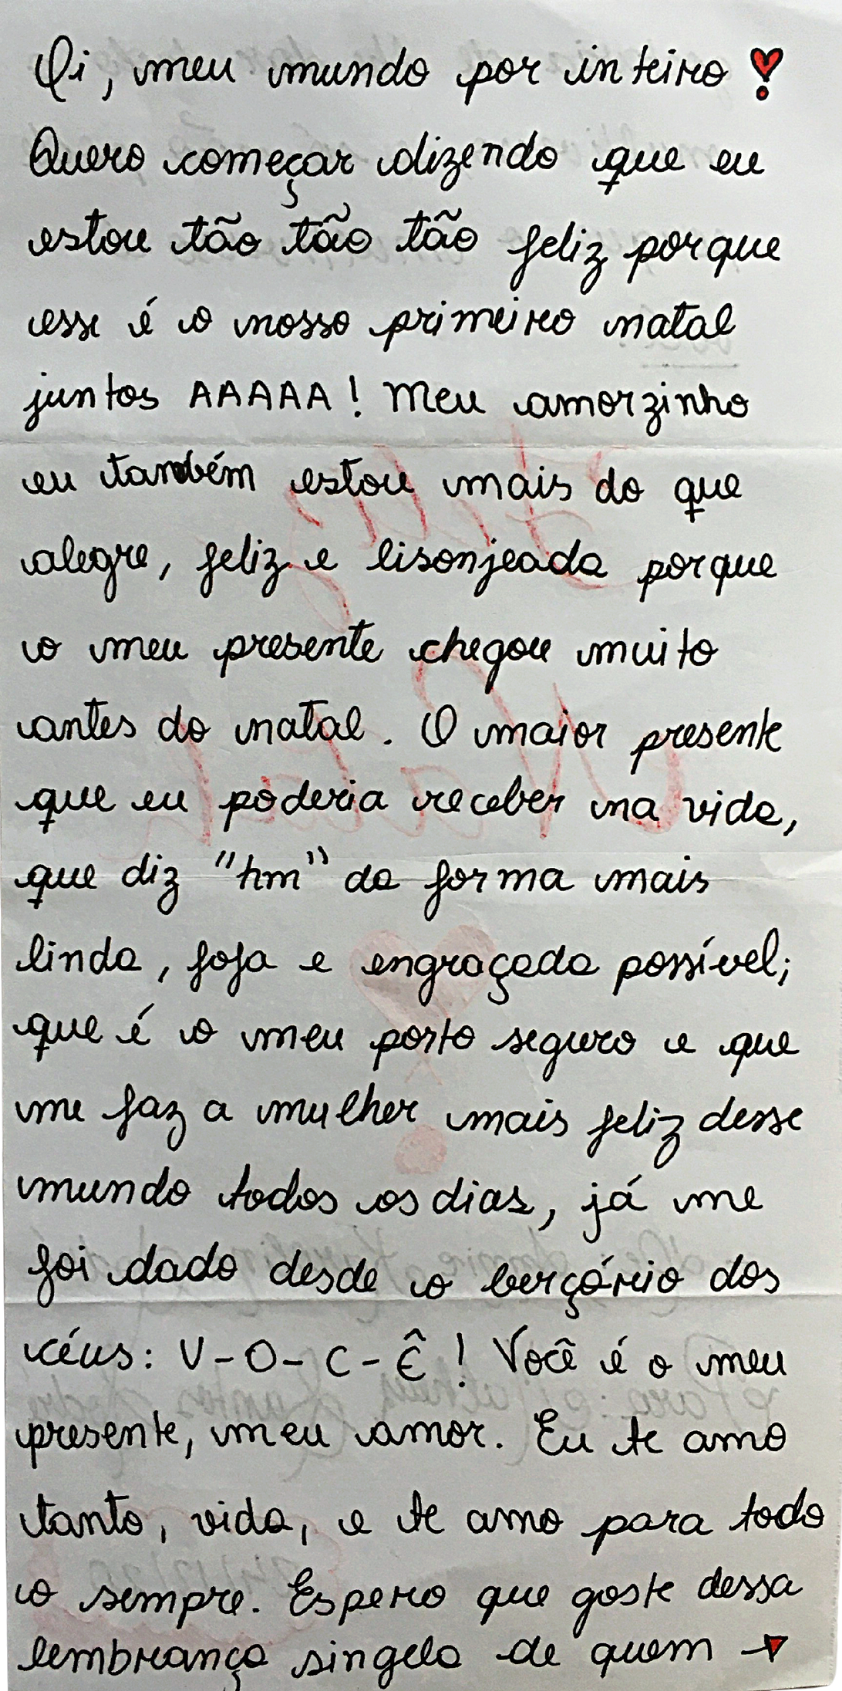 Oi, meu mundo por inteiro
Quero começar dizendo que eu
estou tão tão tão feliz porque
esse é o nosso primeiro natal
juntos AAAAA! Meu amorzinho
eu também estou mais do que
alegre, feliz e lisonjeada porque
o meu presente chegou muito
antes do natal. O maior presente
que eu poderia receber na vida,
que diz "hm" da forma mais
linda, fofa e engraçada possível;
que é o meu porto seguro e que
me faz a mulher mais feliz desse
mundo todos os dias, já me
foi dado desde o berçário dos
céus: V-O-C-Ê! Você é o meu
presente, meu amor. Eu te amo
tanto, vida, e te amo para todo
o sempre. Espero que goste dessa
lembrança singela de quem